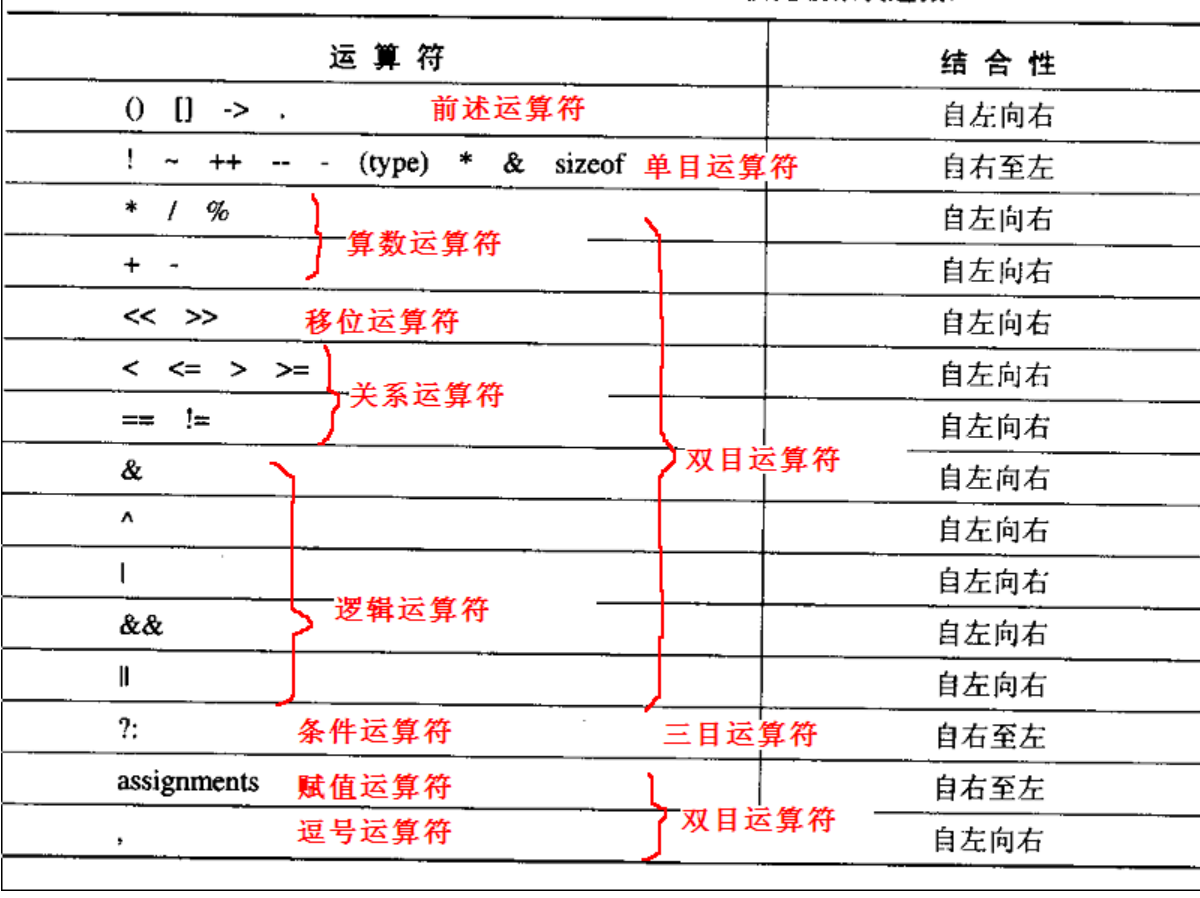 运算符 结合性
() [] -> . 前述运算符 自左向右
! ~ ++ -- - (type) * & sizeof 单目运算符 自右至左
* / % 自左向右
算数运算符
+ - 自左向右
<< >> 移位运算符 自左向右
< <= > >= 自左向右
关系运算符
== != 自左向右
双目运算符
& 自左向右
^ 自左向右
| 自左向右
逻辑运算符
&& 自左向右
|| 自左向右
?: 条件运算符 三目运算符 自右至左
assignments 赋值运算符 自右至左
双目运算符
, 逗号运算符 自左向右